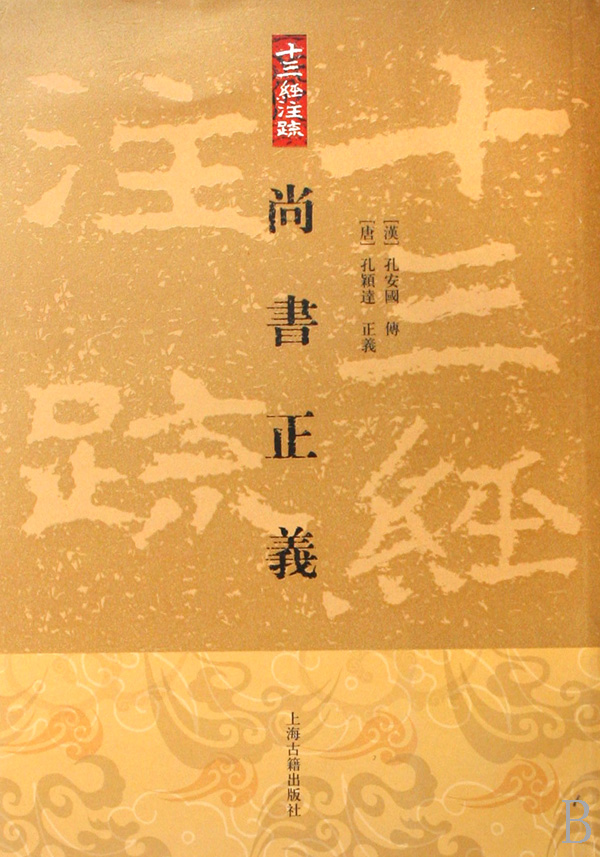 十三經注疏
十三經
注疏
尚書正義
［漢］孔安國 傳
［唐］孔穎達 正義
上海古籍出版社
B